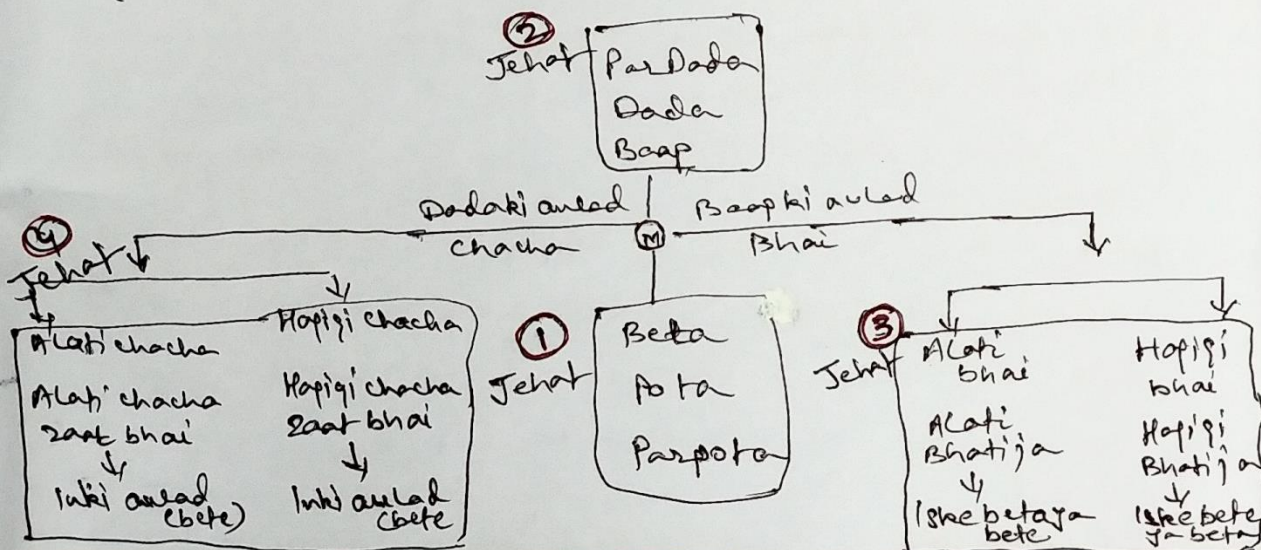 ②
Jehat
ParDada
Dada
Baap
Dadaki aulad
Chacha
M
Baapki aulad
Bhai
④
Jehat
Alati chacha
Alati chacha
zaat bhai
Inki aulad
(bete)
Hapiqi chacha
Hapiqi chacha
zaat bhai
Inki aulad
(bete
①
Jehat
Beta
Pota
Parpota
③
Jehat
Alati
bhai
Alati
Bhatija
Iske betaya
bete
Hapiqi
bhai
Hapiqi
Bhatija
Iske bete
ya beta